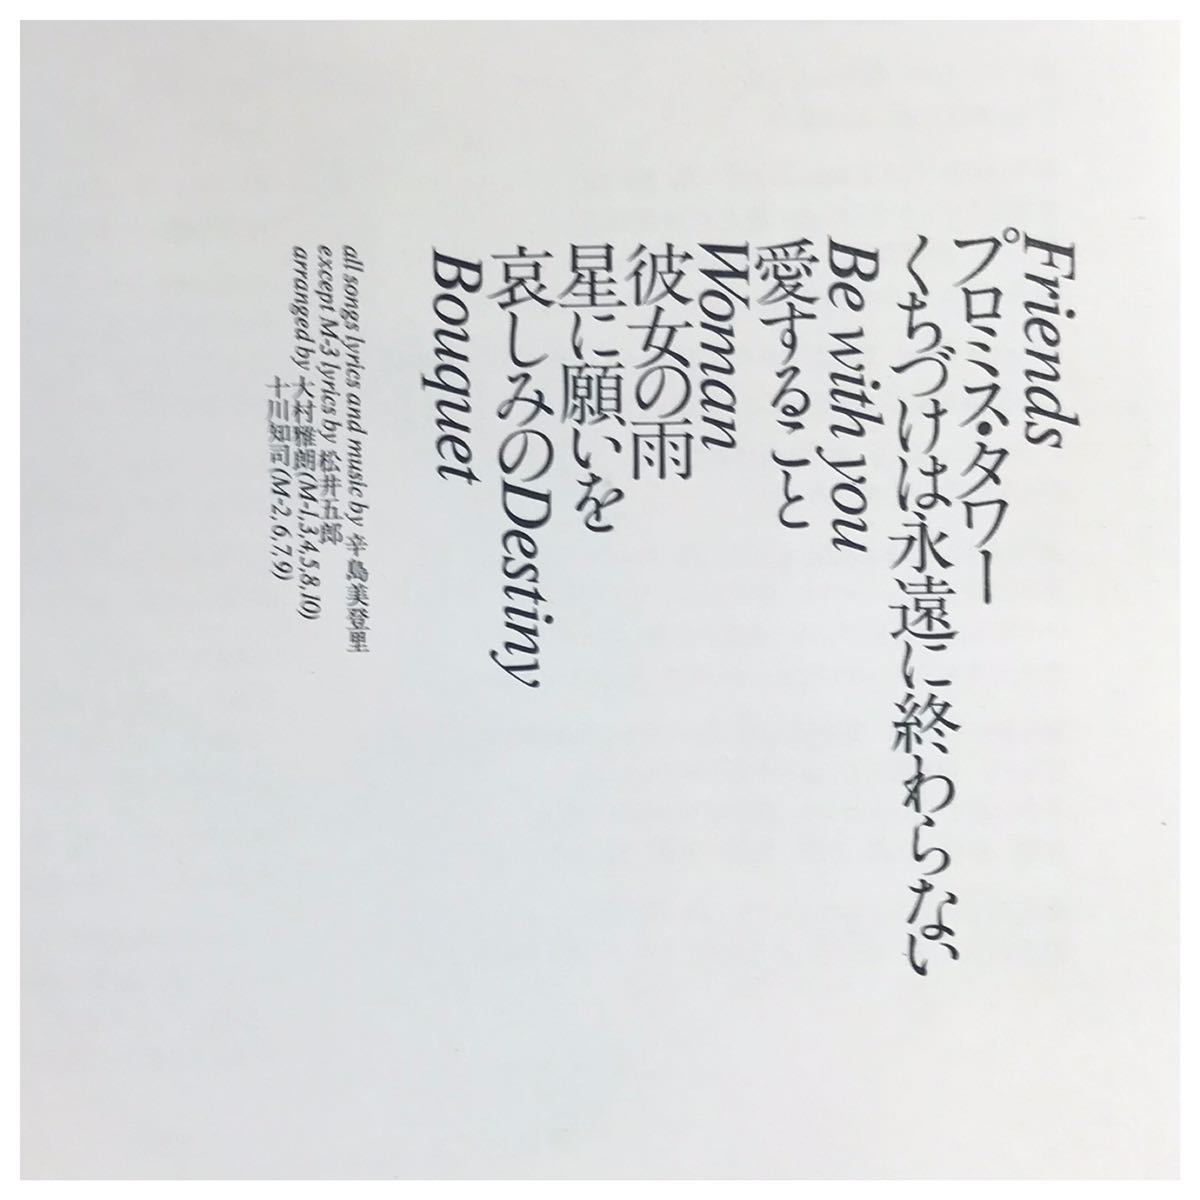 Friends
プロミス・タワー
くちづけは永遠に終わらない
Be with you
愛すること
Woman
彼女の雨
星に願いを
哀しみのDestiny
Bouquet
all songs lyrics and music by 辛島美登里
except M-3 lyrics by 松井五郎
arranged by 大村雅朗(M-1,3,4,5,8,10)
十川知司(M-2,6,7,9)